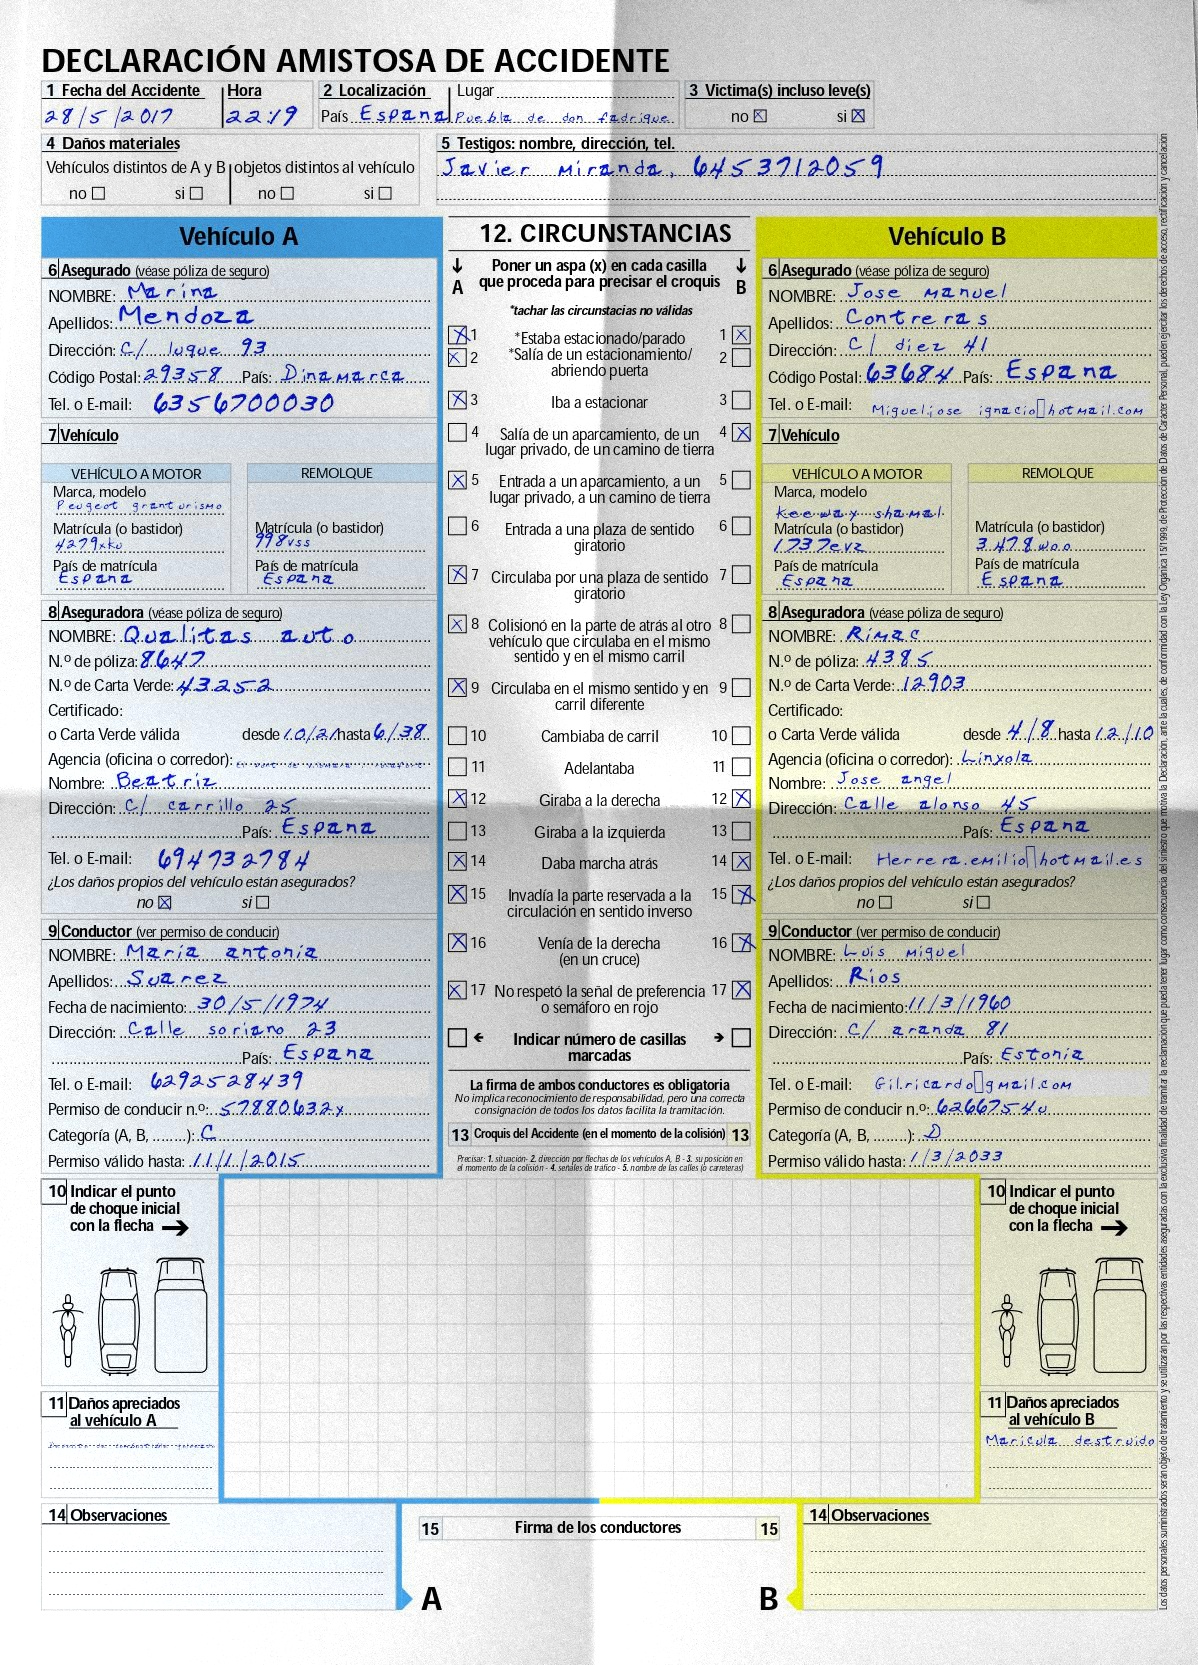 DECLARACIÓN AMISTOSA DE ACCIDENTE
1 Fecha del Accidente Hora 2 Localización Lugar 3 Victima(s) incluso leve(s)
28/5/2017 22:19 País Espana Puebla de don fadrique no ☒ si ☒
4 Daños materiales 5 Testigos: nombre, dirección, tel.
Vehículos distintos de A y B objetos distintos al vehículo Javier miranda, 6453712059
no ☐ si ☐ no ☐ si ☐
Vehículo A
6 Asegurado (véase póliza de seguro)
NOMBRE: Marina
Apellidos: Mendoza
Dirección: C/ luque 93
Código Postal: 29358 País: Dinamarca
Tel. o E-mail: 6356700030
7 Vehículo
VEHÍCULO A MOTOR REMOLQUE
Marca, modelo
Peugeot granturismo
Matrícula (o bastidor) Matrícula (o bastidor)
4279xku 998vss
País de matrícula País de matrícula
Espana Espana
8 Aseguradora (véase póliza de seguro)
NOMBRE: Qualitas auto
N.º de póliza: 8647
N.º de Carta Verde: 43252
Certificado:
o Carta Verde válida desde 10/21 hasta 6/38
Agencia (oficina o corredor):
Nombre: Beatriz
Dirección: C/ carrillo 25
País: Espana
Tel. o E-mail: 694732784
¿Los daños propios del vehículo están asegurados?
no ☒ si ☐
9 Conductor (ver permiso de conducir)
NOMBRE: María antonia
Apellidos: Suarez
Fecha de nacimiento: 30/5/1974
Dirección: Calle soriano 23
País: Espana
Tel. o E-mail: 6292528439
Permiso de conducir n.º: 57880632x
Categoría (A, B, ........): C
Permiso válido hasta: 11/1/2015
12. CIRCUNSTANCIAS
↓ Poner un aspa (x) en cada casilla ↓
A que proceda para precisar el croquis B
*tachar las circunstacias no válidas
☒ 1 *Estaba estacionado/parado 1 ☒
☒ 2 *Salía de un estacionamiento/ 2 ☐
abriendo puerta
☒ 3 Iba a estacionar 3 ☐
☐ 4 Salía de un aparcamiento, de un 4 ☒
lugar privado, de un camino de tierra
☒ 5 Entrada a un aparcamiento, a un 5 ☐
lugar privado, a un camino de tierra
☐ 6 Entrada a una plaza de sentido 6 ☐
giratorio
☒ 7 Circulaba por una plaza de sentido 7 ☐
giratorio
☒ 8 Colisionó en la parte de atrás al otro 8 ☐
vehículo que circulaba en el mismo
sentido y en el mismo carril
☒ 9 Circulaba en el mismo sentido y en 9 ☐
carril diferente
☐ 10 Cambiaba de carril 10 ☐
☐ 11 Adelantaba 11 ☐
☒ 12 Giraba a la derecha 12 ☒
☐ 13 Giraba a la izquierda 13 ☐
☒ 14 Daba marcha atrás 14 ☒
☒ 15 Invadía la parte reservada a la 15 ☒
circulación en sentido inverso
☒ 16 Venía de la derecha 16 ☒
(en un cruce)
☒ 17 No respetó la señal de preferencia 17 ☒
o semáforo en rojo
☐ ← Indicar número de casillas → ☐
marcadas
La firma de ambos conductores es obligatoria
No implica reconocimiento de responsabilidad, pero una correcta
consignación de todos los datos facilita la tramitación.
13 Croquis del Accidente (en el momento de la colisión) 13
Precisar: 1. situación- 2. dirección por flechas de los vehículos A, B - 3. su posición en
el momento de la colisión - 4. señales de tráfico - 5. nombre de las calles (o carreteras)
Vehículo B
6 Asegurado (véase póliza de seguro)
NOMBRE: Jose manuel
Apellidos: Contreras
Dirección: C/ diez 41
Código Postal: 63684 País: Espana
Tel. o E-mail: Migueljose ignacio▯hotmail.com
7 Vehículo
VEHÍCULO A MOTOR REMOLQUE
Marca, modelo
keeway shamal
Matrícula (o bastidor) Matrícula (o bastidor)
1737evz 3478woo
País de matrícula País de matrícula
Espana Espana
8 Aseguradora (véase póliza de seguro)
NOMBRE: Rimac
N.º de póliza: 4385
N.º de Carta Verde: 12903
Certificado:
o Carta Verde válida desde 4/8 hasta 12/10
Agencia (oficina o corredor): Linxola
Nombre: Jose angel
Dirección: Calle alonso 45
País: Espana
Tel. o E-mail: Herrera.emilio▯hotmail.es
¿Los daños propios del vehículo están asegurados?
no ☐ si ☐
9 Conductor (ver permiso de conducir)
NOMBRE: Luis miguel
Apellidos: Rios
Fecha de nacimiento: 11/3/1960
Dirección: C/ aranda 81
País: Estonia
Tel. o E-mail: Gilricardo▯gmail.com
Permiso de conducir n.º: 62667540
Categoría (A, B, ........): D
Permiso válido hasta: 1/3/2033
10 Indicar el punto
de choque inicial
con la flecha →
11 Daños apreciados
al vehículo A
10 Indicar el punto
de choque inicial
con la flecha →
11 Daños apreciados
al vehículo B
Maricula destruido
14 Observaciones
15 Firma de los conductores 15
A B
14 Observaciones
Los datos personales suministrados serán objeto de tratamiento y se utilizarán por las respectivas entidades aseguradas con la exclusiva finalidad de tramitar la reclamación que pueda tener lugar como consecuencia del siniestro que motiva la Declaración, ante la cuales, de conformidad con la Ley Orgánica 15/1999, de Protección de Datos de Carácter Personal, pueden ejercitar los derechos de acceso, rectificación y cancelación